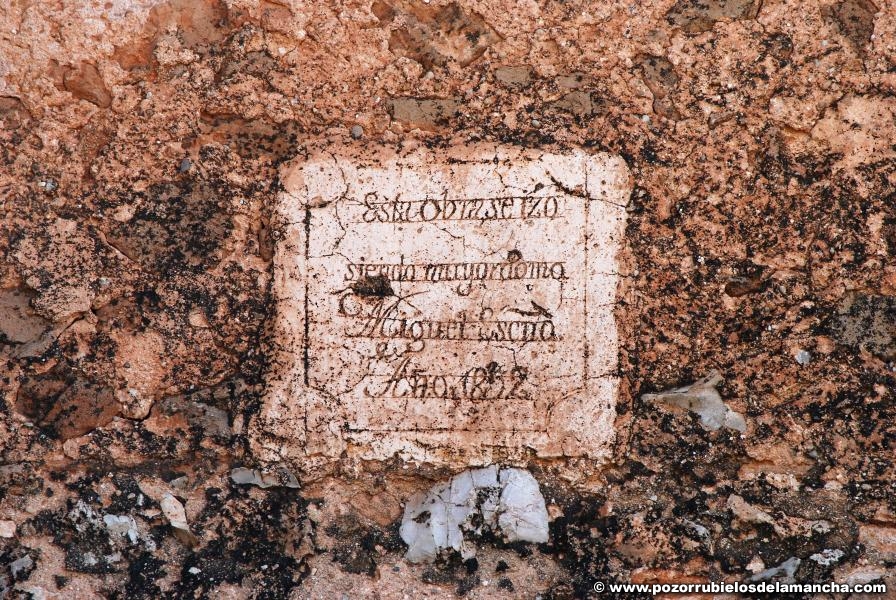 Esta Obra se izo
siendo mayordomo
Miguel Escna
Año. 1852
© www.pozorrubielosdelamancha.com